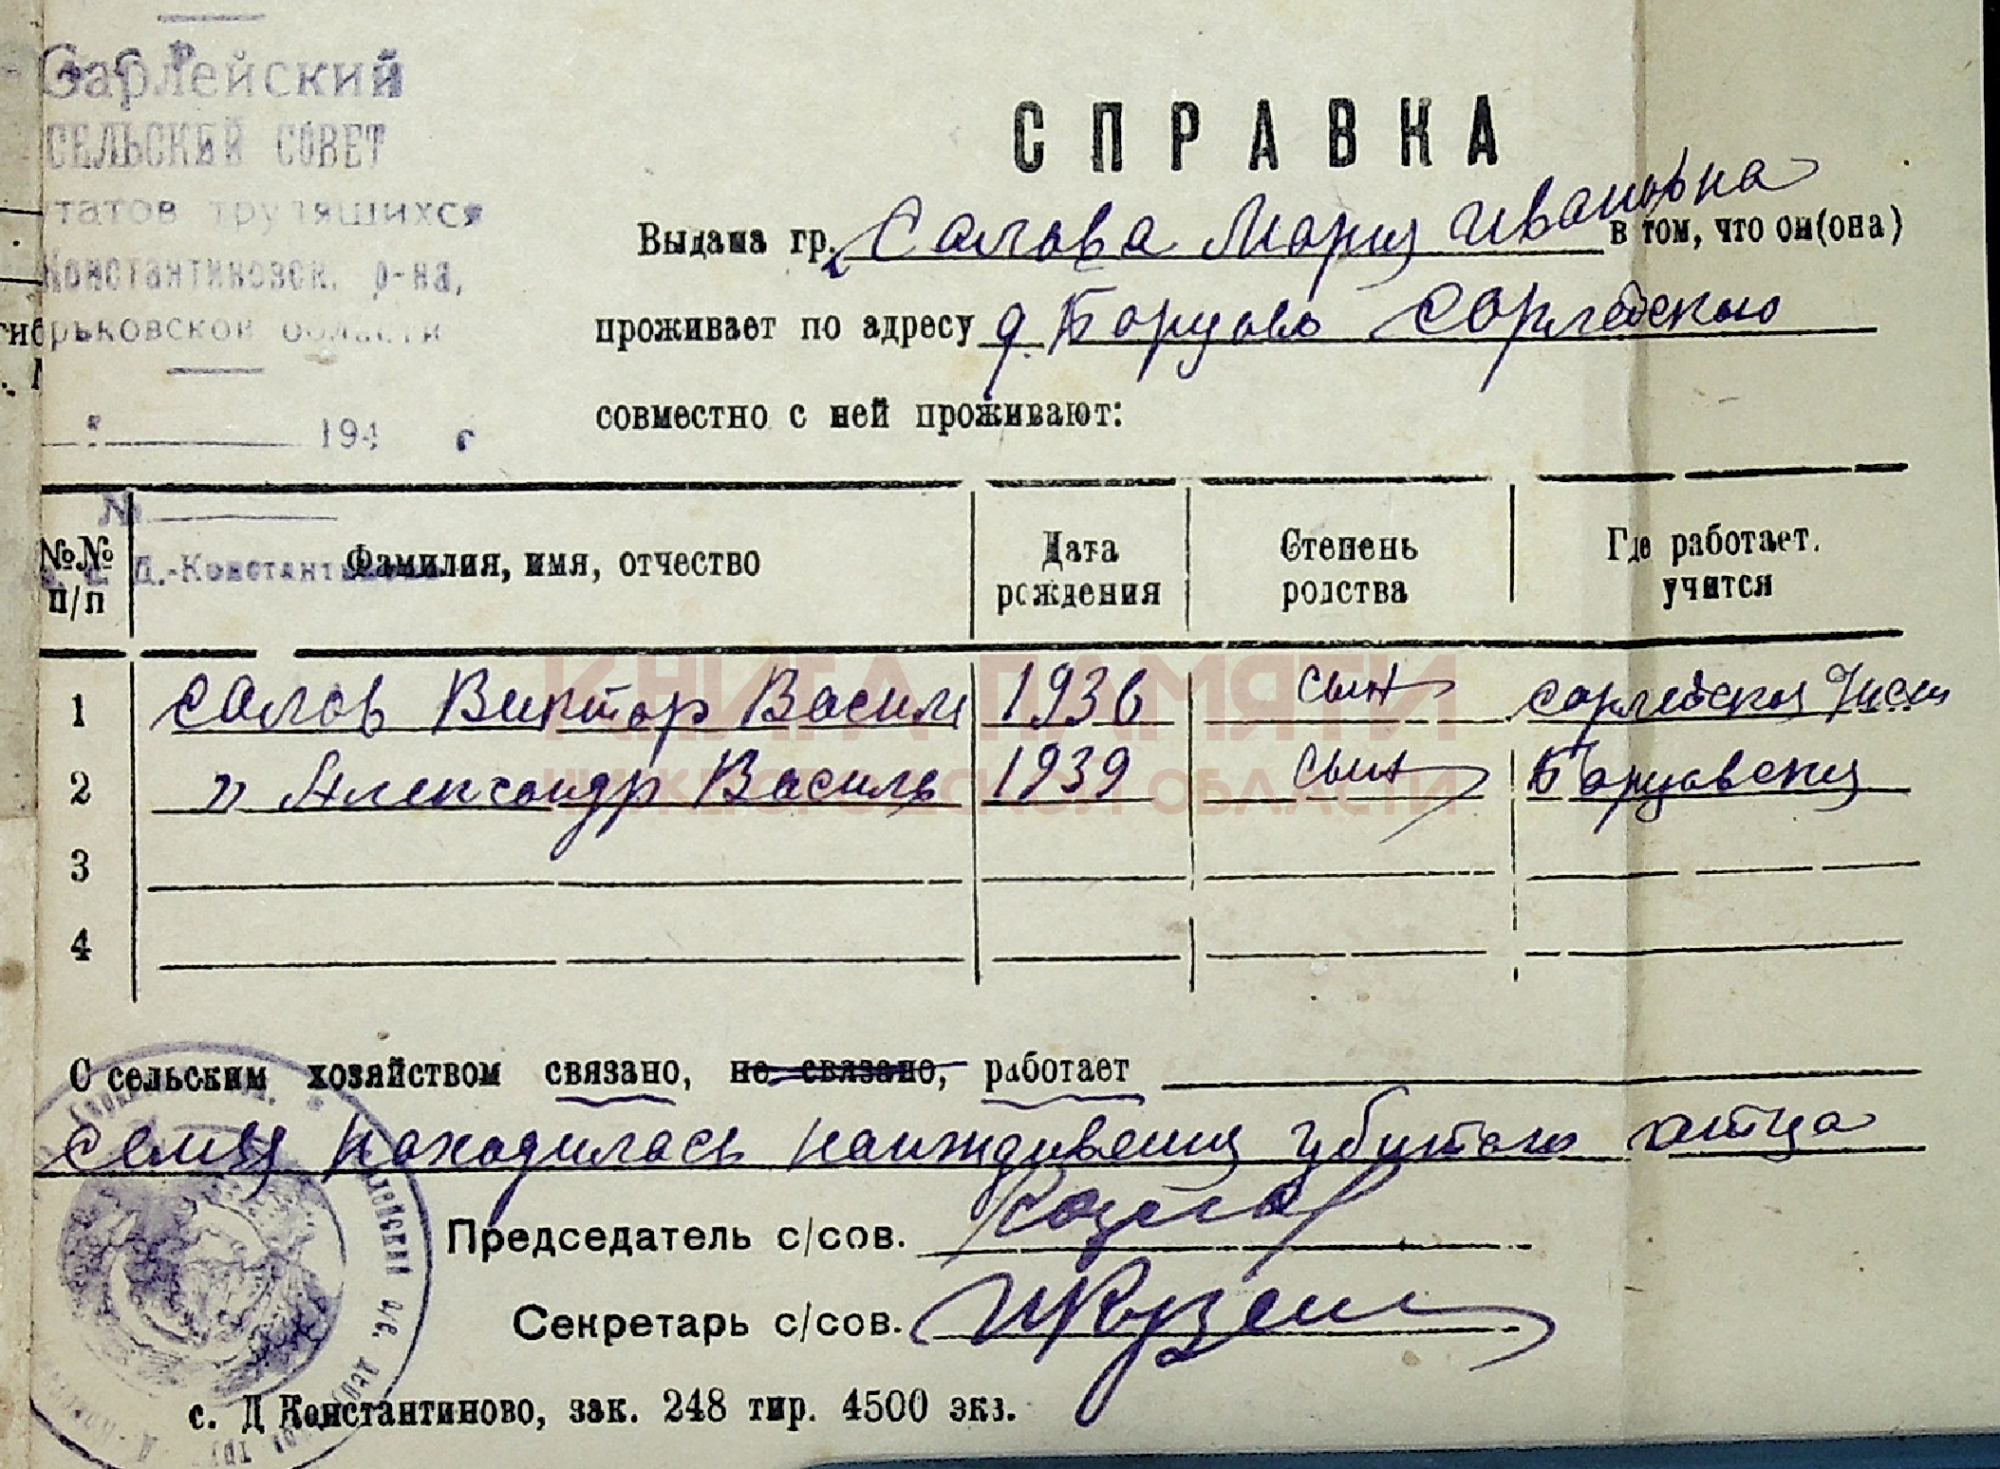 Сарлейский
СЕЛЬСКИЙ СОВЕТ
татов трудящихся
Константиновск. р-на,
рьковской области
194 г
№
Д.-Константин
СПРАВКА
Выдана гр. Салова Мария Ивановна в том, что он(она)
проживает по адресу д. Борцово Сарлейского
совместно с ней проживают:
№№ п/п Фамилия, имя, отчество Дата рождения Степень родства Где работает. учится
1 Салов Виктор Василь 1936 сын Сарлейская
2 " Александр Василь 1939 сын Борцовская
3
4
КНИГА ПАМЯТИ
НИЖЕГОРОДСКОЙ ОБЛАСТИ
С сельским хозяйством связано, не связано, работает
Семья находилась наиждивении убитого отца
Председатель с/сов.
Секретарь с/сов.
с. Д Константиново, зак. 248 тир. 4500 экз.